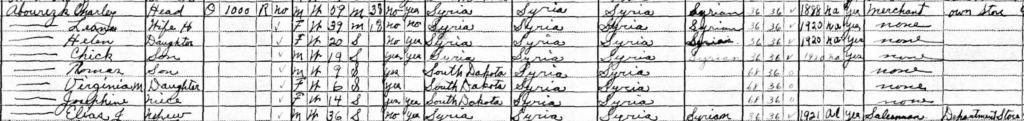 Abourezk Charley Head O 1000 R no M W 59 M 39 no Yes Syria Syria Syria Syrian 36 36 V 1888 na Yes Merchant own Store
Wife H V F W 39 M no no Syria Syria Syria Syrian 36 36 V 1920 na Yes none
Helen Daughter V F W 20 S no Yes Syria Syria Syria Syrian 36 36 V 1920 na Yes none
Chick Son V M W 19 S Yes Yes Syria Syria Syria Syrian 36 36 V na Yes none
Son V M W 9 S Yes South Dakota Syria Syria 68 36 0 none
Virginia M Daughter V F W 6 S Yes South Dakota Syria Syria 68 36 0 none
Josephine niece V F W 14 S Yes Yes South Dakota Syria Syria 68 36 0 none
Elias G nephew V M W 36 S no Yes Syria Syria Syria Syrian 36 36 V 1921 al Yes Salesman Department Store